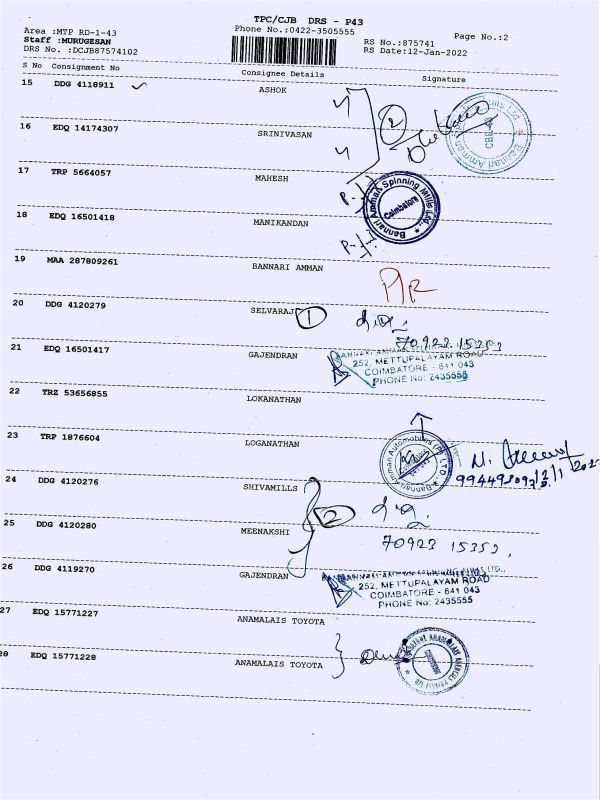 TPC/CJB DRS - P43
Area :MTP RD-1-43
Phone No.:0422-3505555
Page No.:2
Staff :MURUGESAN
RS No.:875741
DRS No. :DCJB87574102
RS Date:12-Jan-2022
S No Consignment No Consignee Details Signature
15 DDG 4118911 ASHOK
2
16 EDQ 14174307 SRINIVASAN
17 TRP 5664057 MAHESH
Bannari Amman Spinning Mills Ltd.,
Coimbatore
18 EDQ 16501418 MANIKANDAN
19 MAA 287809261 BANNARI AMMAN
20 DDG 4120279 SELVARAJ 1
70923 15353
21 EDQ 16501417 GAJENDRAN
252, METTUPALAYAM ROAD
COIMBATORE - 641 043
PHONE No: 2435555
22 TRZ 53656855 LOKANATHAN
23 TRP 1876604 LOGANATHAN
Bannari Amman Automobiles (P) LTD
24 DDG 4120276 SHIVAMILLS
2
25 DDG 4120280 MEENAKSHI
70923 15353.
26 DDG 4119270 GAJENDRAN
252, METTUPALAYAM ROAD
COIMBATORE - 641 043
PHONE No: 2435555
27 EDQ 15771227 ANAMALAIS TOYOTA
28 EDQ 15771228 ANAMALAIS TOYOTA